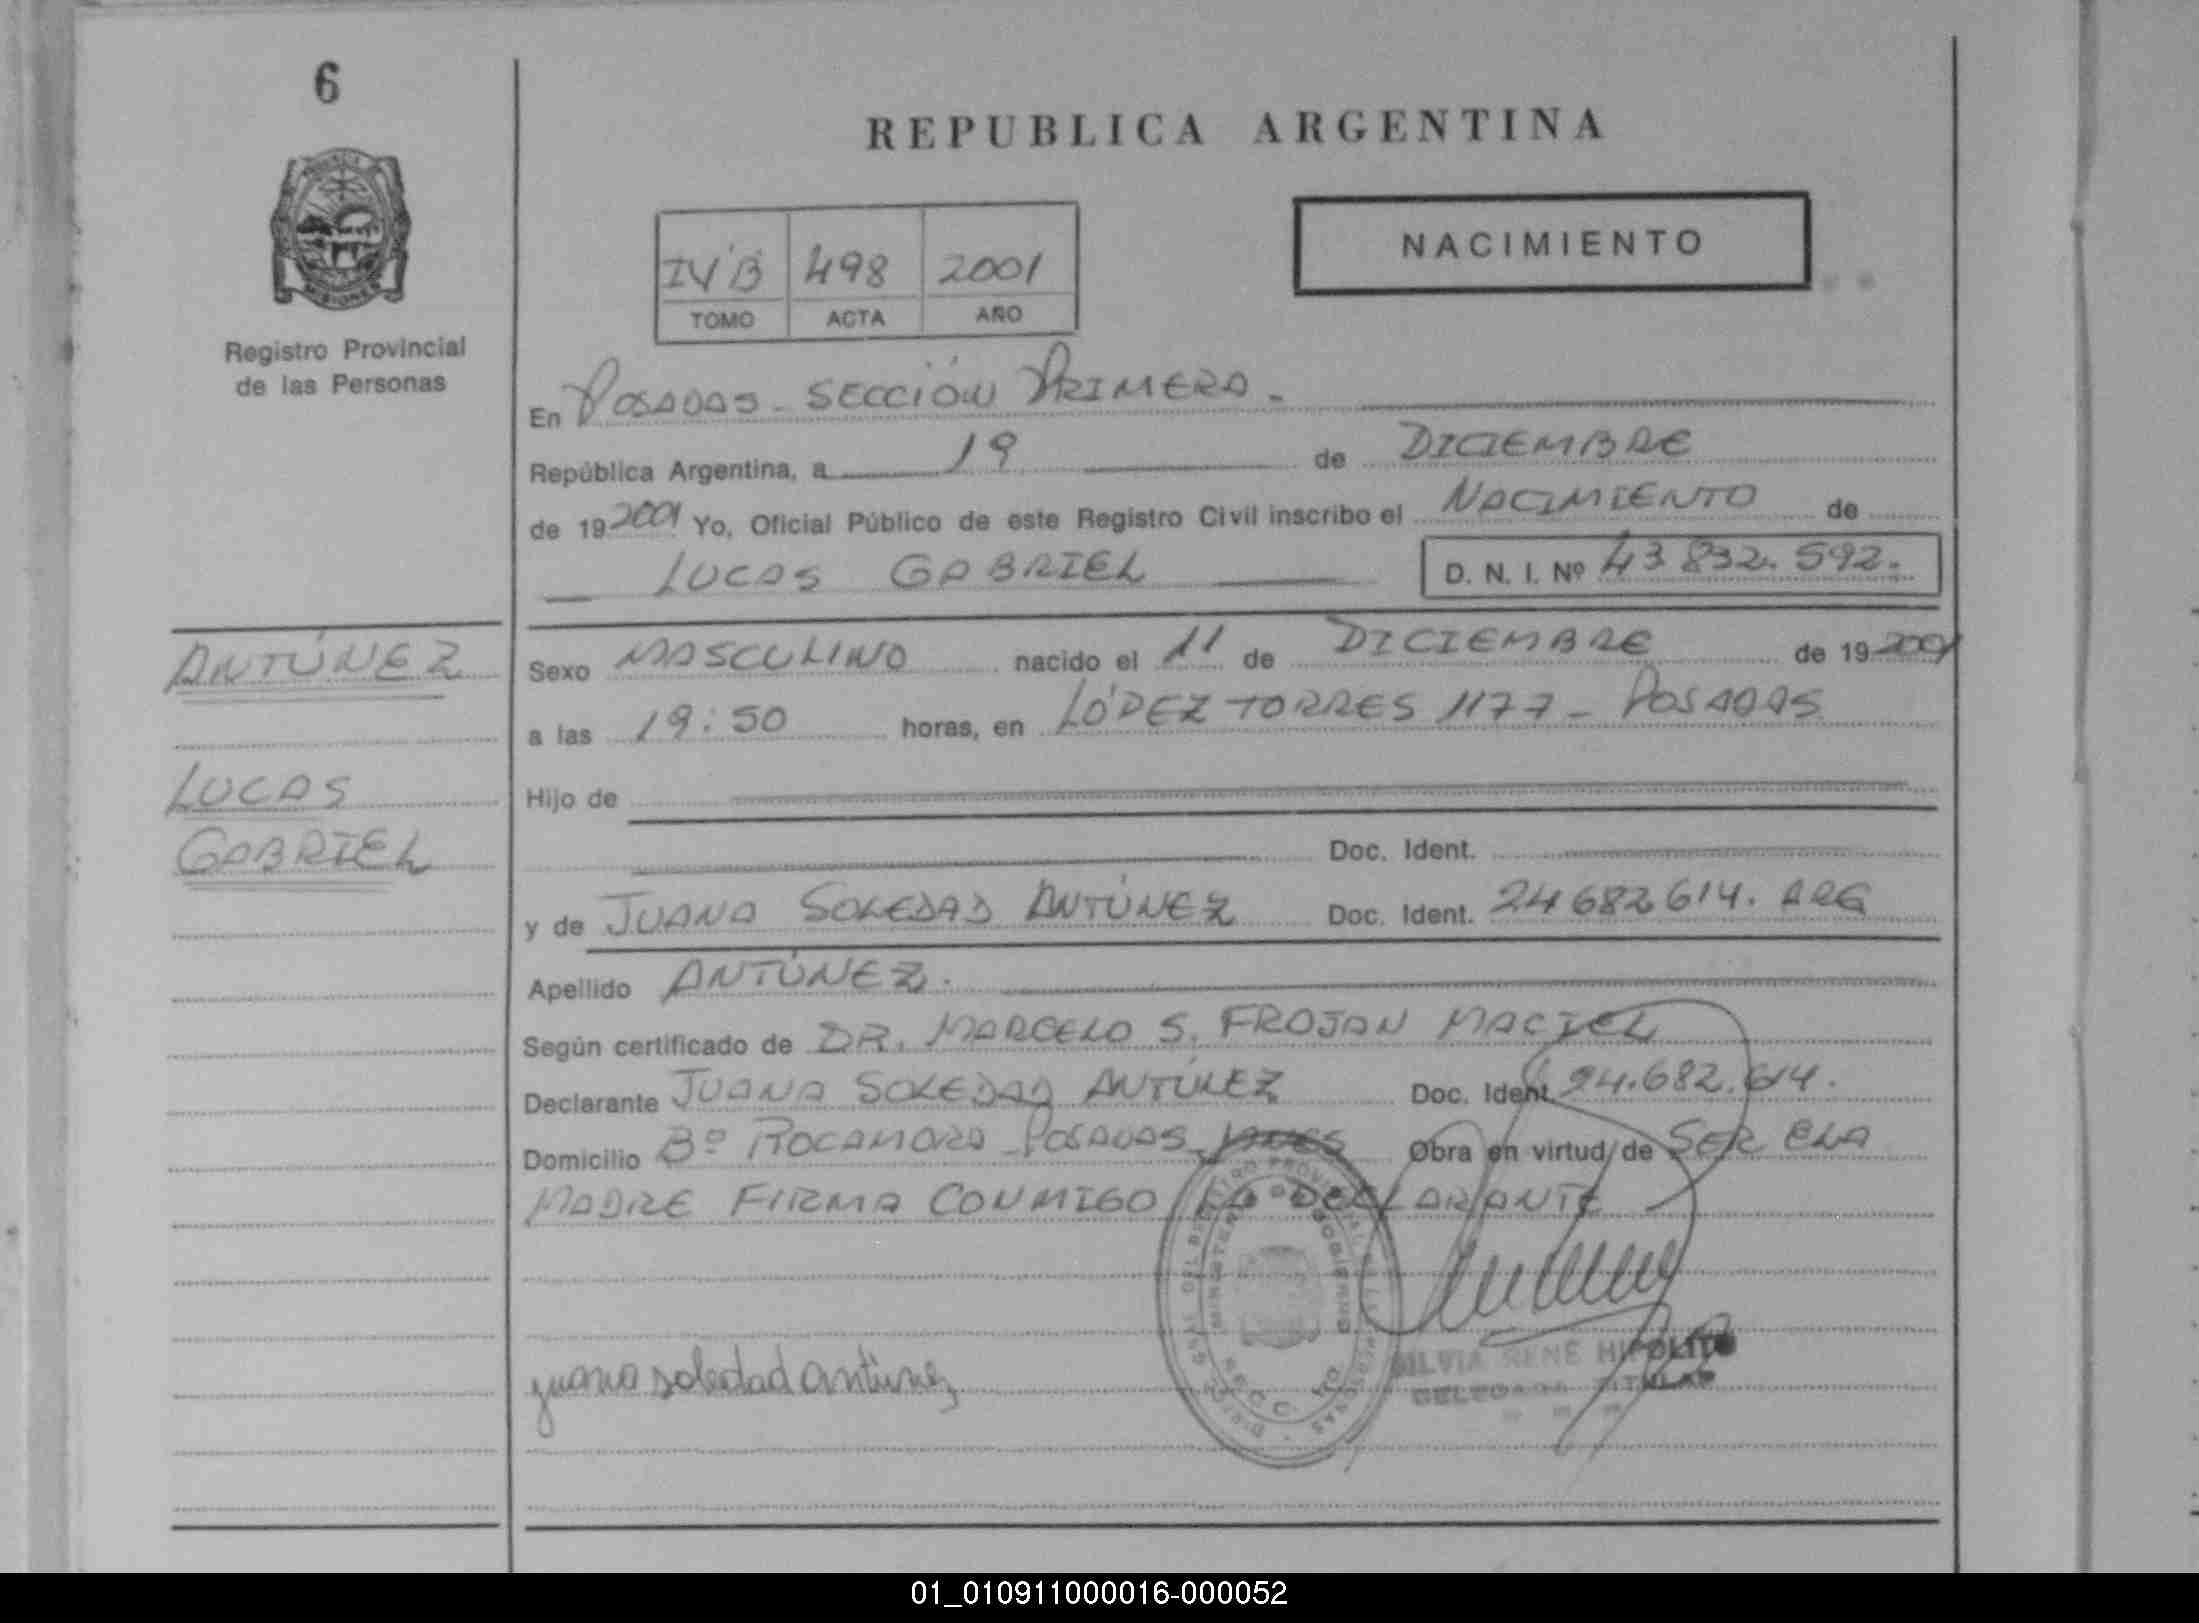 6
REPUBLICA ARGENTINA
NACIMIENTO
IV B 498 2001
TOMO ACTA AÑO
MISIONES
Registro Provincial
de las Personas
En POSADAS - SECCIÓN PRIMERA -
República Argentina, a 19 de DICIEMBRE
de 19 2001 Yo, Oficial Público de este Registro Civil inscribo el NACIMIENTO de
LUCAS GABRIEL D. N. I. Nº 43 832. 592.
ANTÚNEZ
LUCAS
GABRIEL
Sexo MASCULINO nacido el 11 de DICIEMBRE de 19 2001
a las 19:50 horas, en LÓPEZ TORRES 1177 - POSADAS
Hijo de
Doc. Ident.
y de JUANA SOLEDAD ANTÚNEZ Doc. Ident. 24 682 614. ARG
Apellido ANTÚNEZ.
Según certificado de DR. MARCELO S. FROJAN MACIEL
Declarante JUANA SOLEDAD ANTÚNEZ Doc. Ident. 24.682.614.
Domicilio Bº ROCAMORA - POSADAS - Obra en virtud de SER ELA
MADRE FIRMA CONMIGO LA DECLARANTE
juana soledad antunez
SILVIA RENE HIPOLITO
DELEGADA TITULAR
01_010911000016-000052